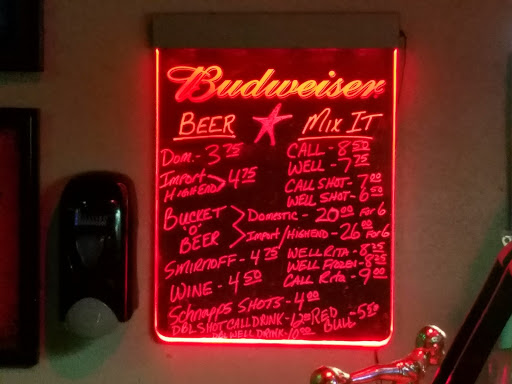 Budweiser
BEER
MIX IT
Dom. - 3 75
Import HIGHEND > 4 75
BUCKET O' BEER
Domestic - 20 00 For 6
Import/HIGHEND - 26 00 For 6
SMIRNOFF - 4 75
WINE - 4 50
CALL - 8 50
WELL - 7 75
CALL SHOT - 7 00
WELL SHOT - 6 50
WELL RITA - 8 25
WELL FROZEN - 8 25
CALL RITA - 9 00
Schnapps SHOTS - 4 00
DBL SHOT CALL DRINK - 12 00
DBL WELL DRINK - 10 00
RED BULL - 5 50